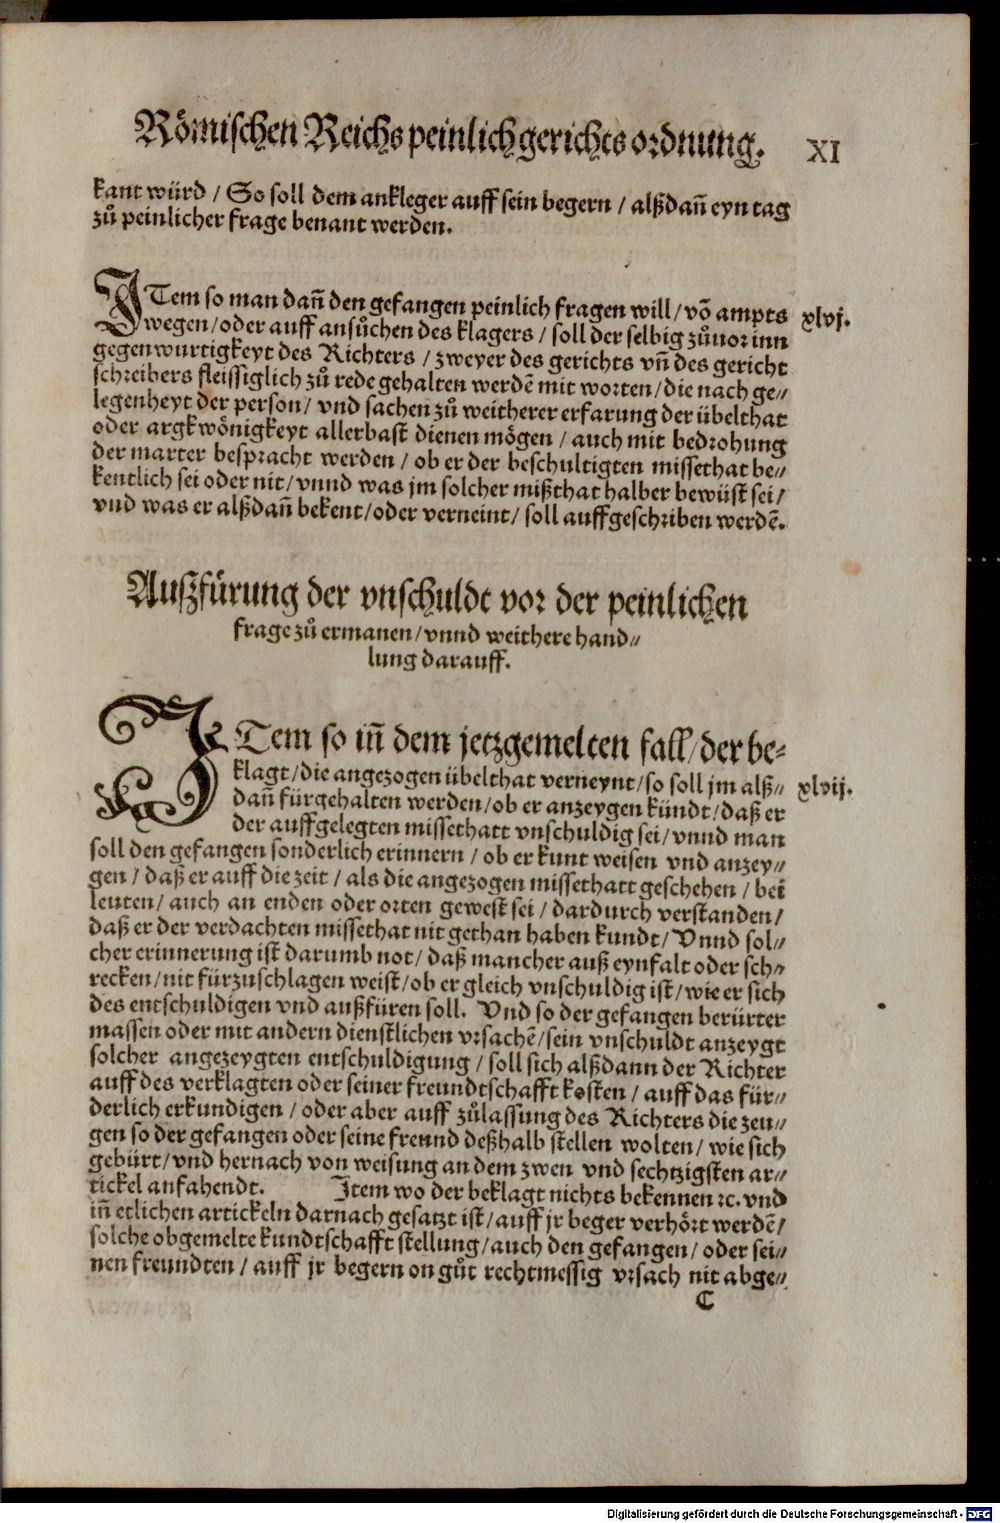 Römischen Reichs peinlich gerichts ordnung. XI
kant würd / So soll dem ankleger auff sein begern / alßdañ eyn tag
zů peinlicher frage benant werden.
ITem so man dañ den gefangen peinlich fragen will / võ ampts xlvj.
wegen / oder auff ansůchen des klagers / soll der selbig zůuor inn
gegenwurtigkeyt des Richters / zweyer des gerichts vñ des gericht
schreibers fleissiglich zů rede gehalten werdẽ mit worten / die nach ge⸗
legenheyt der person / vnd sachen zů weitherer erfarung der übelthat
oder argkwönigkeyt allerbast dienen mögen / auch mit bedrohung
der marter bespracht werden / ob er der beschultigten missethat be⸗
kentlich sei oder nit / vnnd was jm solcher mißthat halber bewüst sei /
vnd was er alßdañ bekent / oder verneint / soll auffgeschriben werdẽ.
Außfürung der vnschuldt vor der peinlichen
frage zů ermanen / vnnd weithere hand⸗
lung darauff.
ITem so iñ dem jetzgemelten fall / der be⸗
klagt / die angezogen übelthat verneynt / so soll jm alß⸗ xlvij.
dañ fürgehalten werden / ob er anzeygen kündt / daß er
der auffgelegten missethatt vnschuldig sei / vnnd man
soll den gefangen sonderlich erinnern / ob er kunt weisen vnd anzey⸗
gen / daß er auff die zeit / als die angezogen missethatt geschehen / bei
leuten / auch an enden oder orten gewest sei / dardurch verstanden /
daß er der verdachten missethat nit gethan haben kundt / Vnnd sol⸗
cher erinnerung ist darumb not / daß mancher auß eynfalt oder sch⸗
recken / nit fürzuschlagen weist / ob er gleich vnschuldig ist / wie er sich
des entschuldigen vnd außfüren soll. Vnd so der gefangen berürter
massen oder mit andern dienstlichen vrsachẽ / sein vnschuldt anzeygt
solcher angezeygten entschuldigung / soll sich alßdann der Richter
auff des verklagten oder seiner freundtschafft kosten / auff das für⸗
derlich erkundigen / oder aber auff zůlassung des Richters die zeu⸗
gen so der gefangen oder seine freund deßhalb stellen wolten / wie sich
gebürt / vnd hernach von weisung an dem zwen vnd sechtzigsten ar⸗
tickel anfahendt. Item wo der beklagt nichts bekennen ꝛc. vnd
iñ etlichen artickeln darnach gesatzt ist / auff jr beger verhört werdẽ /
solche obgemelte kundtschafft stellung / auch den gefangen / oder sei⸗
nen freundten / auff jr begern on gůt rechtmessig vrsach nit abge⸗
C
Digitalisierung gefördert durch die Deutsche Forschungsgemeinschaft - DFG